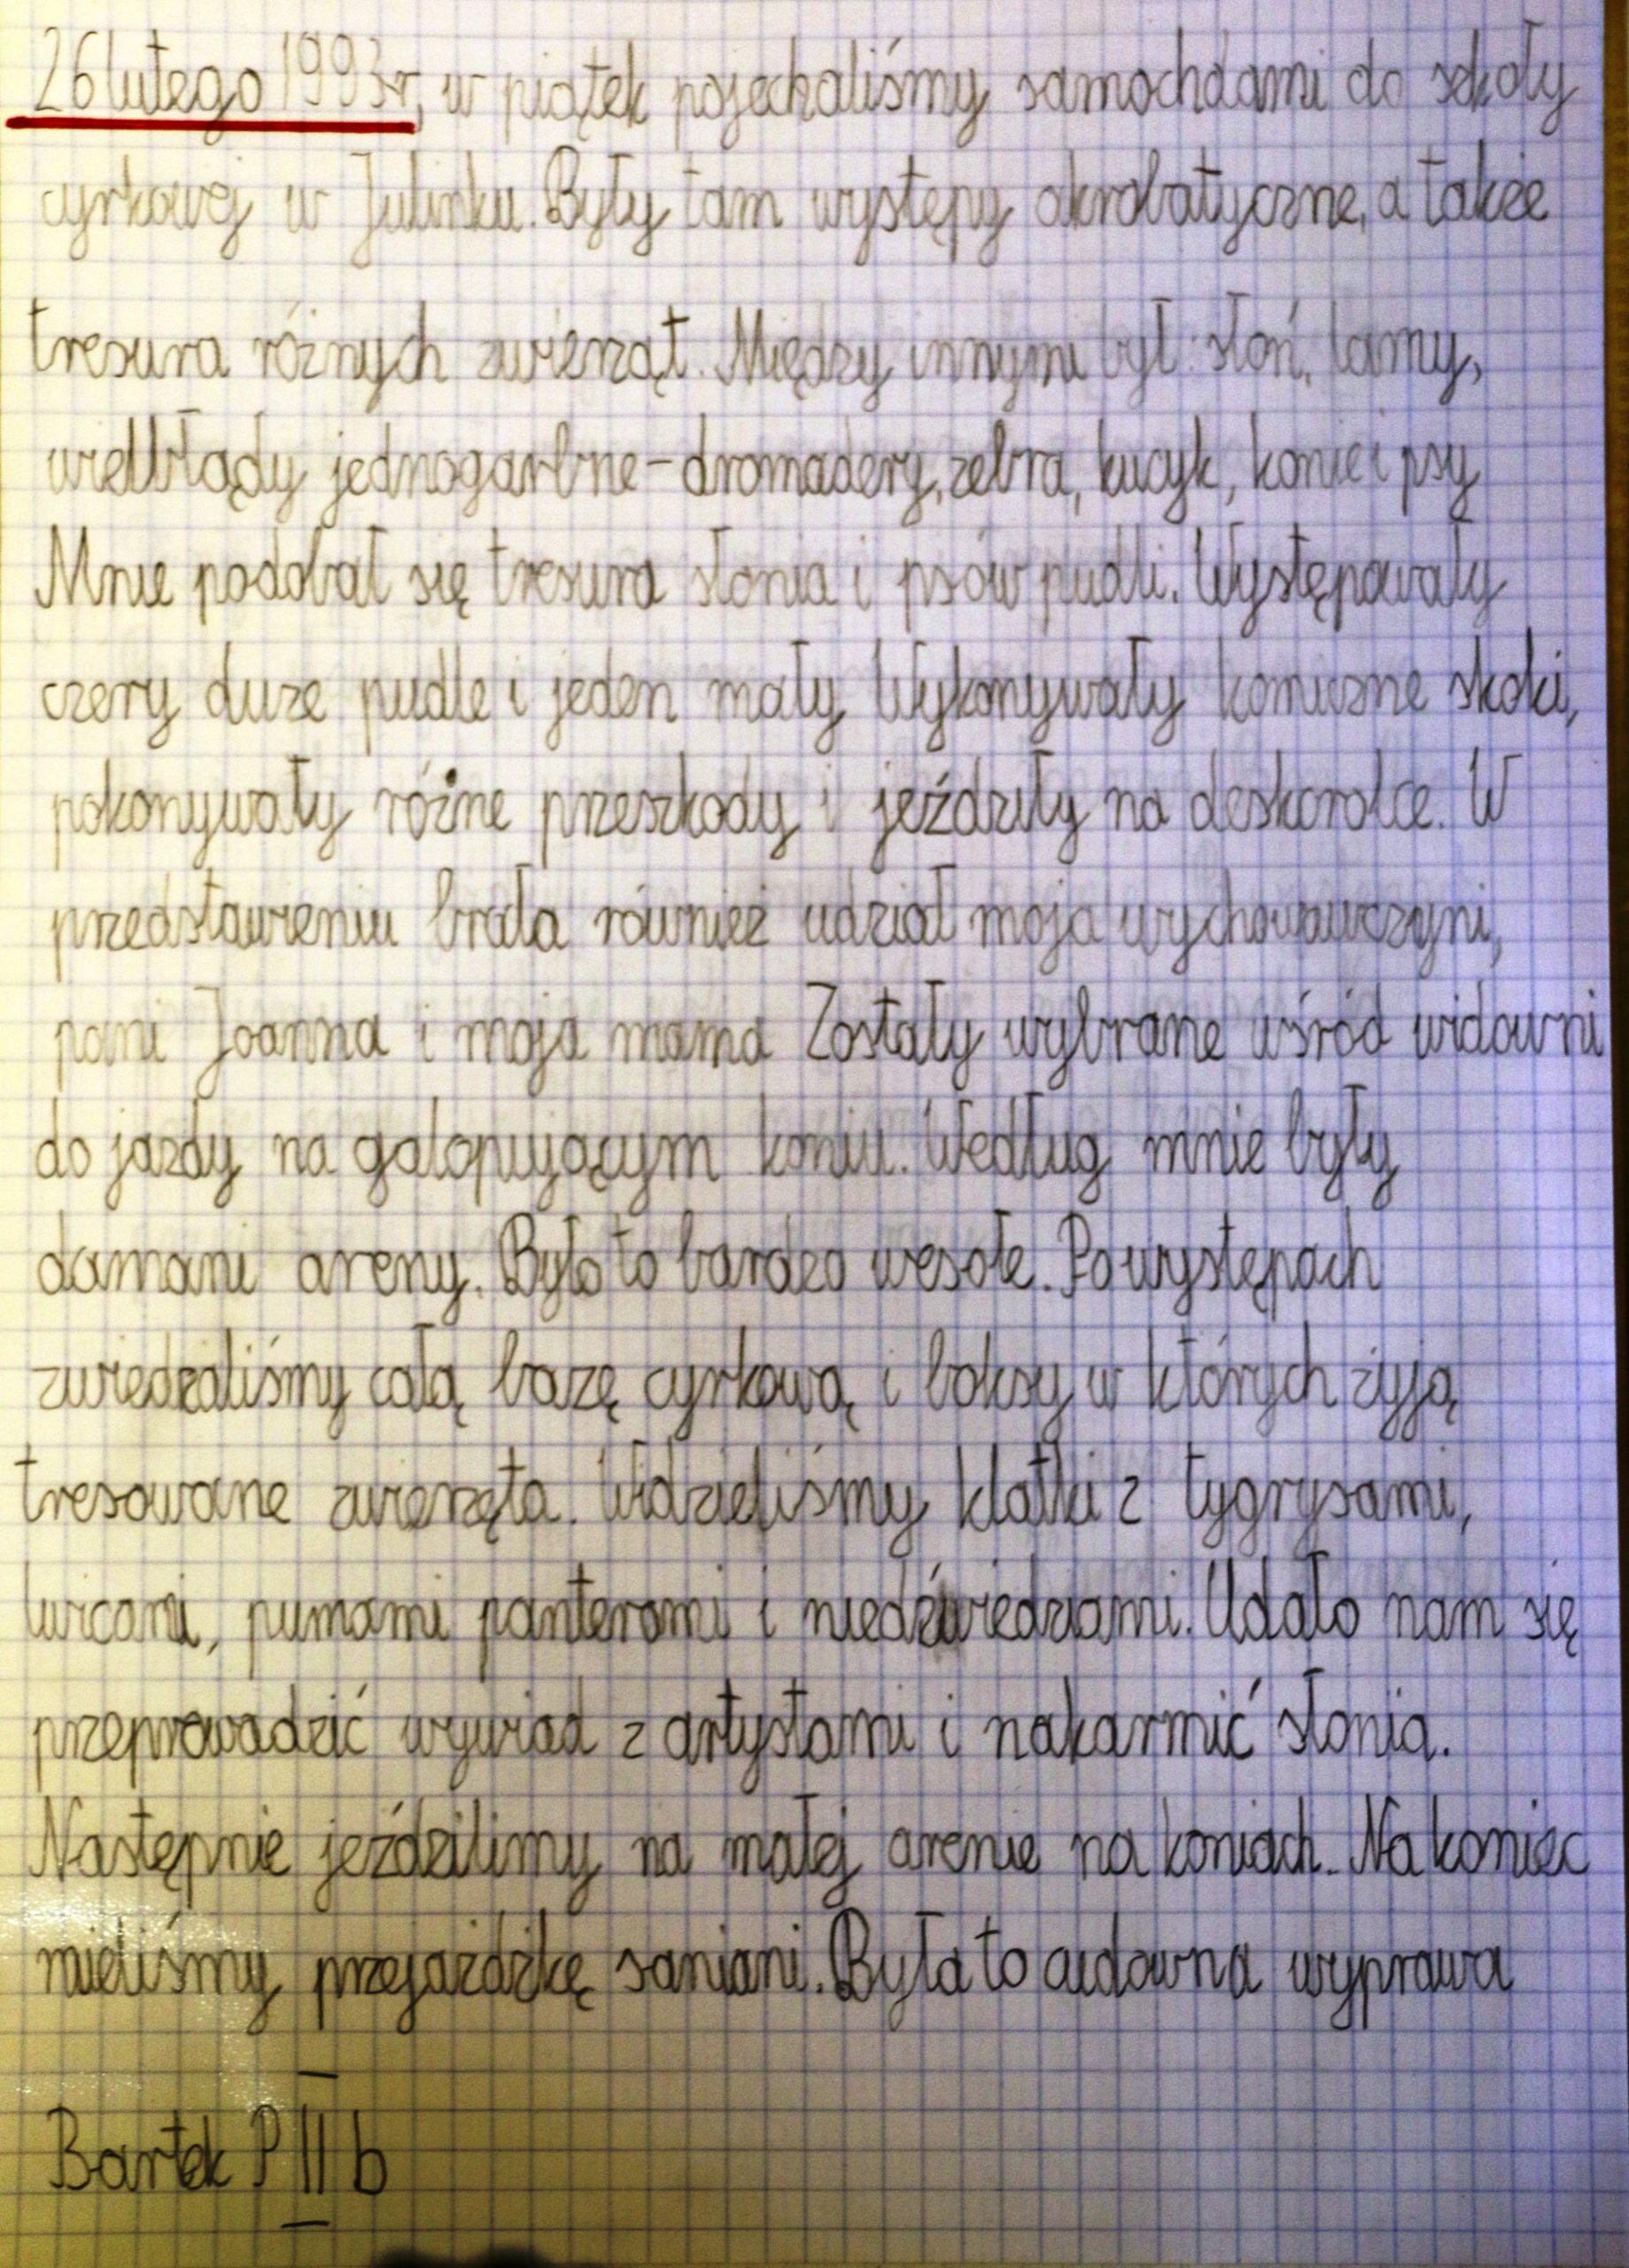 26 lutego 1993r, w piątek pojechaliśmy samochdami do szkoły
cyrkowej w Julinku. Były tam występy akrobatyczne, a także
tresura różnych zwierząt. Między innymi był: słoń, lamy,
wielbłądy jednogarbne - dromadery, zebra, kucyk, konie i psy
Mnie podobał się tresura słonia i psów pudli. Występowały
czery duże pudle i jeden mały Wykonywały komiczne skoki,
pokonywały różne przeszkody i jeździły na deskorolce. W
przedstawieniu brała również udział moja wychowawczyni,
pani Joanna i moja mama Zostały wybrane wśród widowni
do jazdy na galopującym koniu. Według mnie były
damami areny. Było to bardzo wesołe. Po występach
zwiedzaliśmy całą bazę cyrkową i boksy w których żyją
tresowane zwierzęta. Widzieliśmy klatki z tygrysami,
lwicami, pumami panterami i niedźwiedziami. Udało nam się
przeprowadzić wywiad z artystami i nakarmić słonia.
Następnie jeździlimy na małej arenie na koniach. Na koniec
mieliśmy przejażdżkę saniami. Była to cudowna wyprawa
Bartek P II b